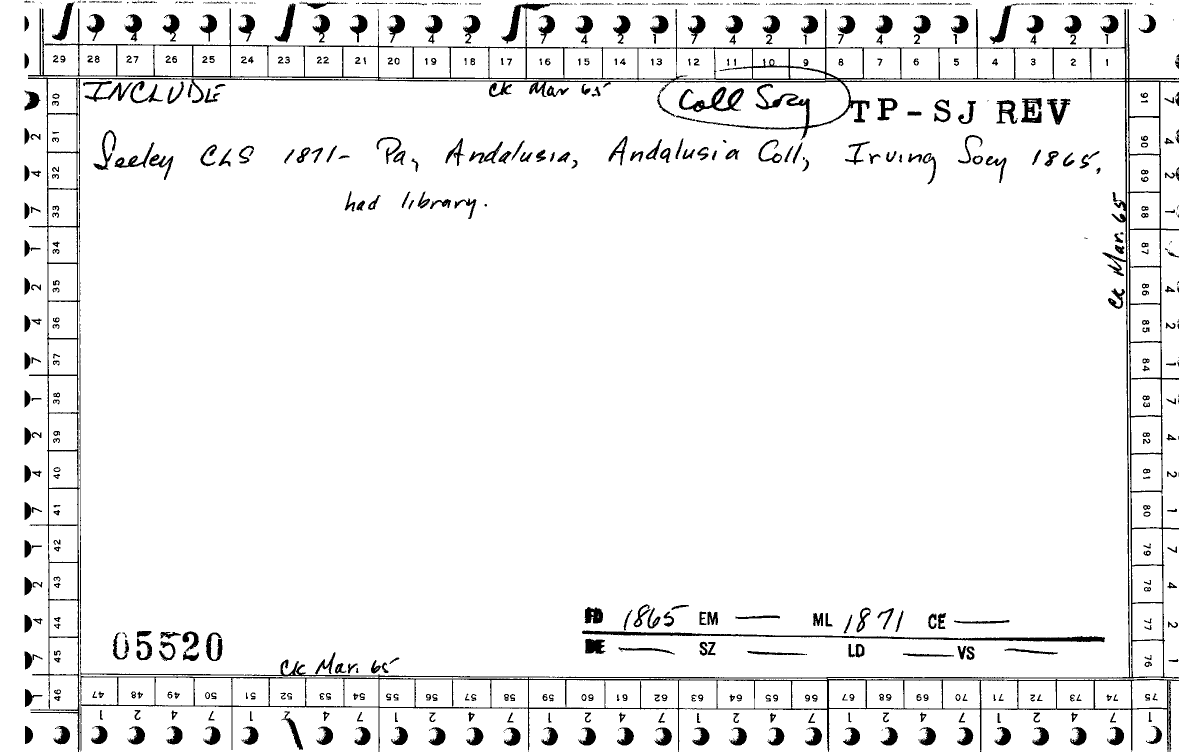 7 4 2 1 7 2 1 7 4 2 7 4 1 7 2 1 7 4 2 1 4 2 1
29 28 27 26 25 24 23 22 21 20 19 18 17 16 15 14 13 12 11 10 9 8 7 6 5 4 3 2 1
INCLUDE CK Mar 65 Coll Socy TP-SJ REV
Seeley CLS 1871- Pa, Andalusia, Andalusia Coll, Irving Socy 1865,
had library.
CK Mar. 65
30 31 32 33 34 35 36 37 38 39 40 41 42 43 44 45 46
2 4 7 1 2 4 7 1 2 4 7 1 2 4 7 1
91 90 89 88 87 86 85 84 83 82 81 80 79 78 77 76 75
7 4 2 1 4 2 1 7 4 2 1 7 4 2 1
FD 1865 EM — ML 1871 CE —
DE — SZ — LD — VS —
05520
CK Mar. 65
47 48 49 50 51 52 53 54 55 56 57 58 59 60 61 62 63 64 65 66 67 68 69 70 71 72 73 74
1 2 4 7 1 2 4 7 1 2 4 7 1 2 4 7 1 2 4 7 1 2 4 7 1 2 4 7